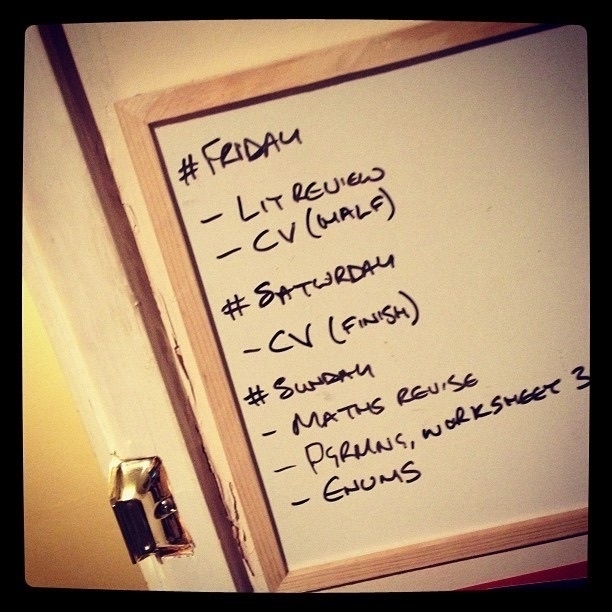 #FRIDAY
- LIT REVIEW
- CV (HALF)
# SATURDAY
- CV (FINISH)
# SUNDAY
- MATHS REVISE
- PGRMNG, WORKSHEET 3
- ENUMS